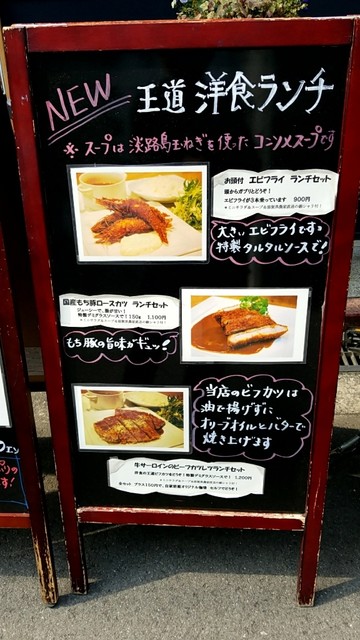 NEW 王道 洋食ランチ
※ スープは 淡路島玉ねぎを使った コンソメスープです
お頭付 エビフライ ランチセット
頭からガブリとどうぞ!
エビフライが3本乗っています 900円
大きい エビフライです♪
特製 タルタルソースで!
国産もち豚ロースカツ ランチセット
ジューシーで、脂が甘い!
特製デミグラスソースで!150g 1,100円
もち豚の旨味がギュッ!
当店のビフカツは
油で揚げずに
オリーブオイルとバターで
焼き上げます
牛サーロインのビーフカツレツランチセット
特製デミグラスソースで! 1,200円
全セット プラス150円で、
セルフでどうぞ!